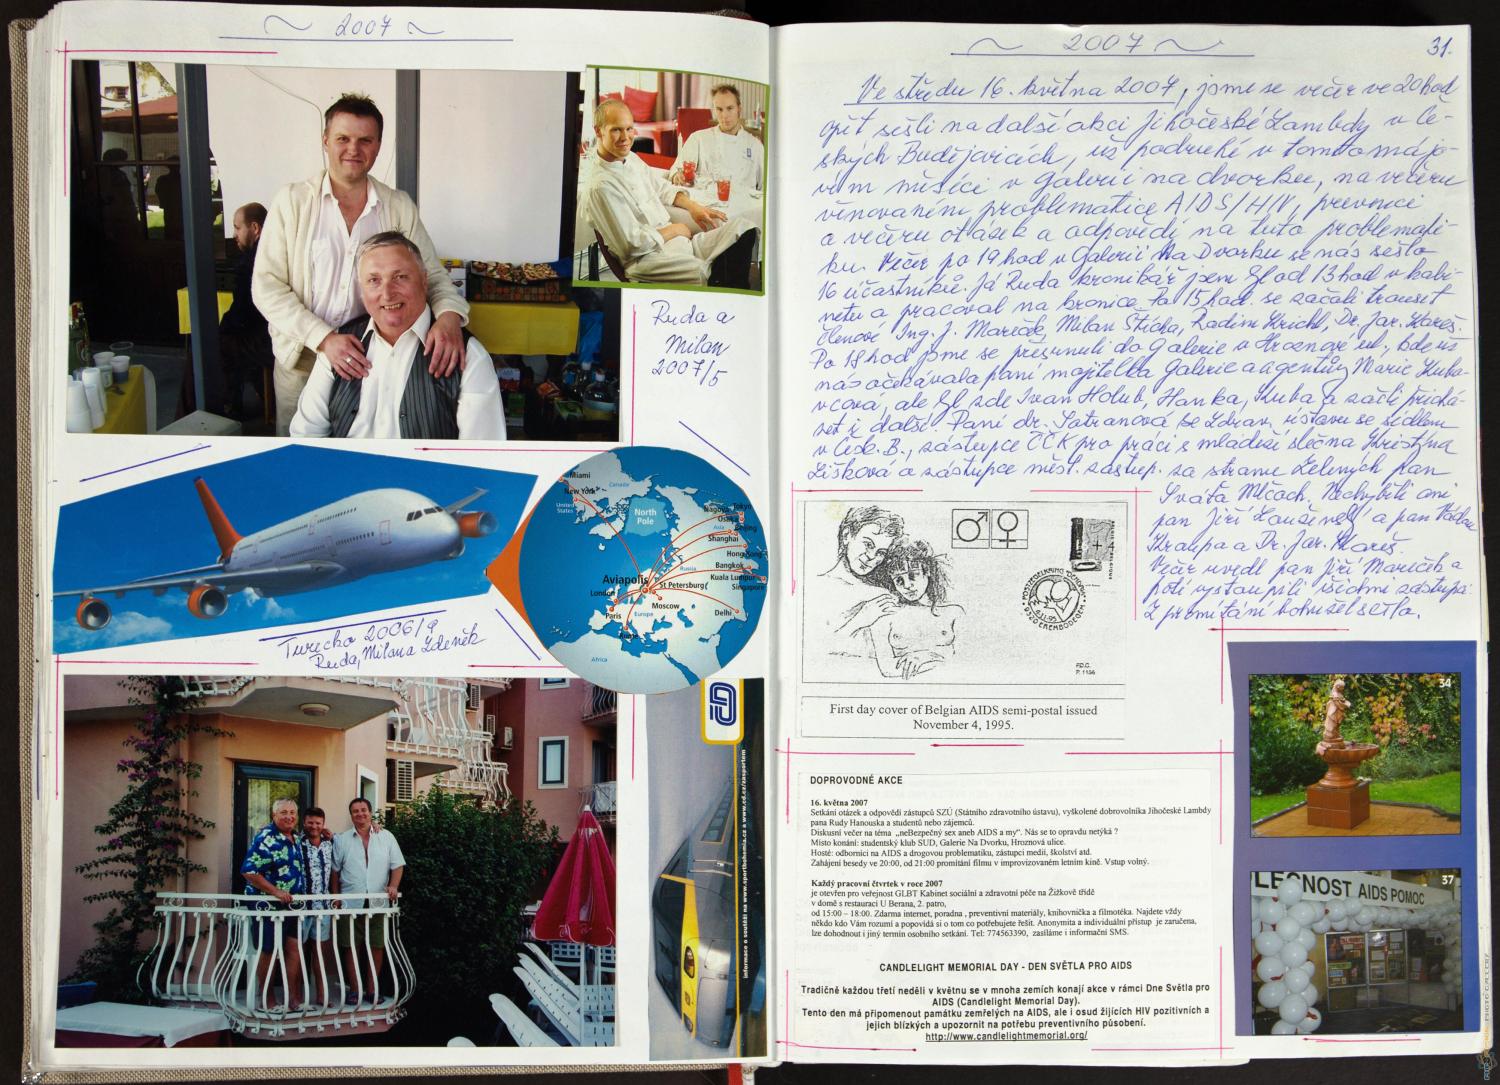 ~ 2007 ~
Ruda a
Milan
2007/5
Miami
New York
Canada
United
States
North
Pole
Tokyo
Nagoya
Osaka
Beijing
Asia
Shanghai
Hong Kong
Bangkok
Russia
Kuala Lumpur
Singapore
Aviapolis
St Petersburg
London
Moscow
Delhi
Paris
Europe
Rome
Africa
Turecko 2006/9
Ruda, Milan a Zdeněk
informace o soutěži na www.sportbohemia.cz a www.cd.cz/zasportem
~ 2007 ~
31.
Ve středu 16. května 2007, jsme se večer ve 20 hod
opět sešli na další akci Jihočeské Lambdy v Če-
ských Budějovicích, už podruhé v tomto májo-
vém měsíci v Galerii na dvorku, na večeru
věnovaném problematice AIDS/HIV, prevenci
a večeru otázek a odpovědí na tuto problemati-
ku. Večer po 19 hod v Galerii Na Dvorku se nás sešlo
16 účastníků. Já Ruda kronikář jsem byl od 13 hod v kabi-
netu a pracoval na kronice, od 15 hod. se začali trousit
členové Ing. J. Mareček, Milan Štícha, Radim Krichl, Dr. Jar. Mareš.
Po 18 hod jsme se přesunuli do Galerie v Hroznové ul., kde už
nás očekávala paní majitelka galerie a agentury Marie Kuba-
vcová, ale byl zde Ivan Holub, Hanka, Kuba a začli přichá-
zet i další. Paní dr. Satranová ze Zdrav. ústavu se sídlem
v Česk. B., zástupce ČČK pro práci s mládeží slečna Kristýna
Lišková a zástupce měst. zastup. za stranu Zelených pan
Sváťa Mlčoch. Nechyběli ani
pan Jiří a pan Václav
Kraupa a Dr. Jar. Mareš.
Večer uvedl pan Jiří Mareček a
poté vystoupili všichni zástupci.
Z promítání bohužel sešlo.
9320 EREMBODEGEM
F.D.C.
P. 1156
First day cover of Belgian AIDS semi-postal issued
November 4, 1995.
DOPROVODNÉ AKCE
16. května 2007
Setkání otázek a odpovědí zástupců SZÚ (Státního zdravotního ústavu), vyškolené dobrovolníka Jihočeské Lambdy
pana Rudy Hanouska a studentů nebo zájemců.
Diskusní večer na téma „neBezpečný sex aneb AIDS a my“. Nás se to opravdu netýká ?
Místo konání: studentský klub SUD, Galerie Na Dvorku, Hroznová ulice.
Hosté: odborníci na AIDS a drogovou problematiku, zástupci medií, školství atd.
Zahájení besedy ve 20:00, od 21:00 promítání filmu v improvizovaném letním kině. Vstup volný.
Každý pracovní čtvrtek v roce 2007
je otevřen pro veřejnost GLBT Kabinet sociální a zdravotní péče na Žižkově třídě
v domě s restaurací U Berana, 2. patro,
od 15:00 – 18:00. Zdarma internet, poradna , preventivní materiály, knihovnička a filmotéka. Najdete vždy
někdo kdo Vám rozumí a popovídá si o tom co potřebujete řešit. Anonymita a individuální přístup je zaručena,
lze dohodnout i jiný termín osobního setkání. Tel: 774563390, zasíláme i informační SMS.
CANDLELIGHT MEMORIAL DAY - DEN SVĚTLA PRO AIDS
Tradičně každou třetí neděli v květnu se v mnoha zemích konají akce v rámci Dne Světla pro
AIDS (Candlelight Memorial Day).
Tento den má připomenout památku zemřelých na AIDS, ale i osud žijících HIV pozitivních a
jejich blízkých a upozornit na potřebu preventivního působení.
http://www.candlelightmemorial.org/
34
37
LEČNOST AIDS POMOC